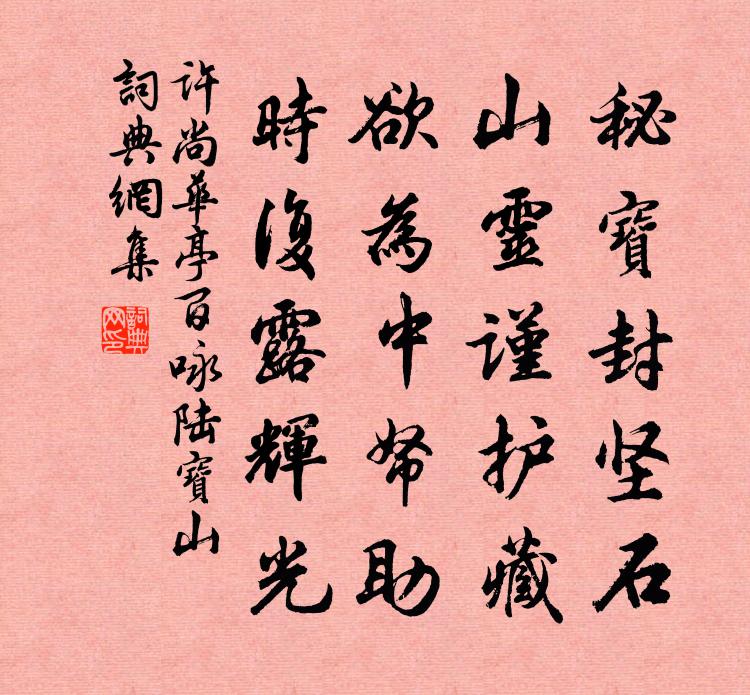 秘寶封坚石
山靈謹护藏
欲為中帑助
時復露輝光
许尚華亭百咏陆寶山
詞典網集
詞典
网印